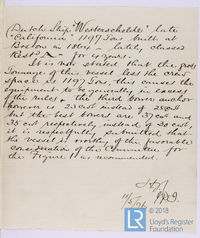 (Dutch Ship "Westerschelde", late
"California" 1197 Tons built at
Boston in 18 , lately classed
Red A for years.
It is not stated that the gross
tonnage of this vessel less the crew
space is 1197 Tons, this causes the
equipment to be generally in excess
of the rules, the third bower anchor
however is 23 cwt instead of
but the best bowers are 37 cwt and
35 cwt respectively instead of 33 cwt
it is respectfully submitted that
the vessel is worthy of the favorable
consideration of the Committee for
the Figure 1 as recommended.
© 2018
Lloyd's Register
Foundation